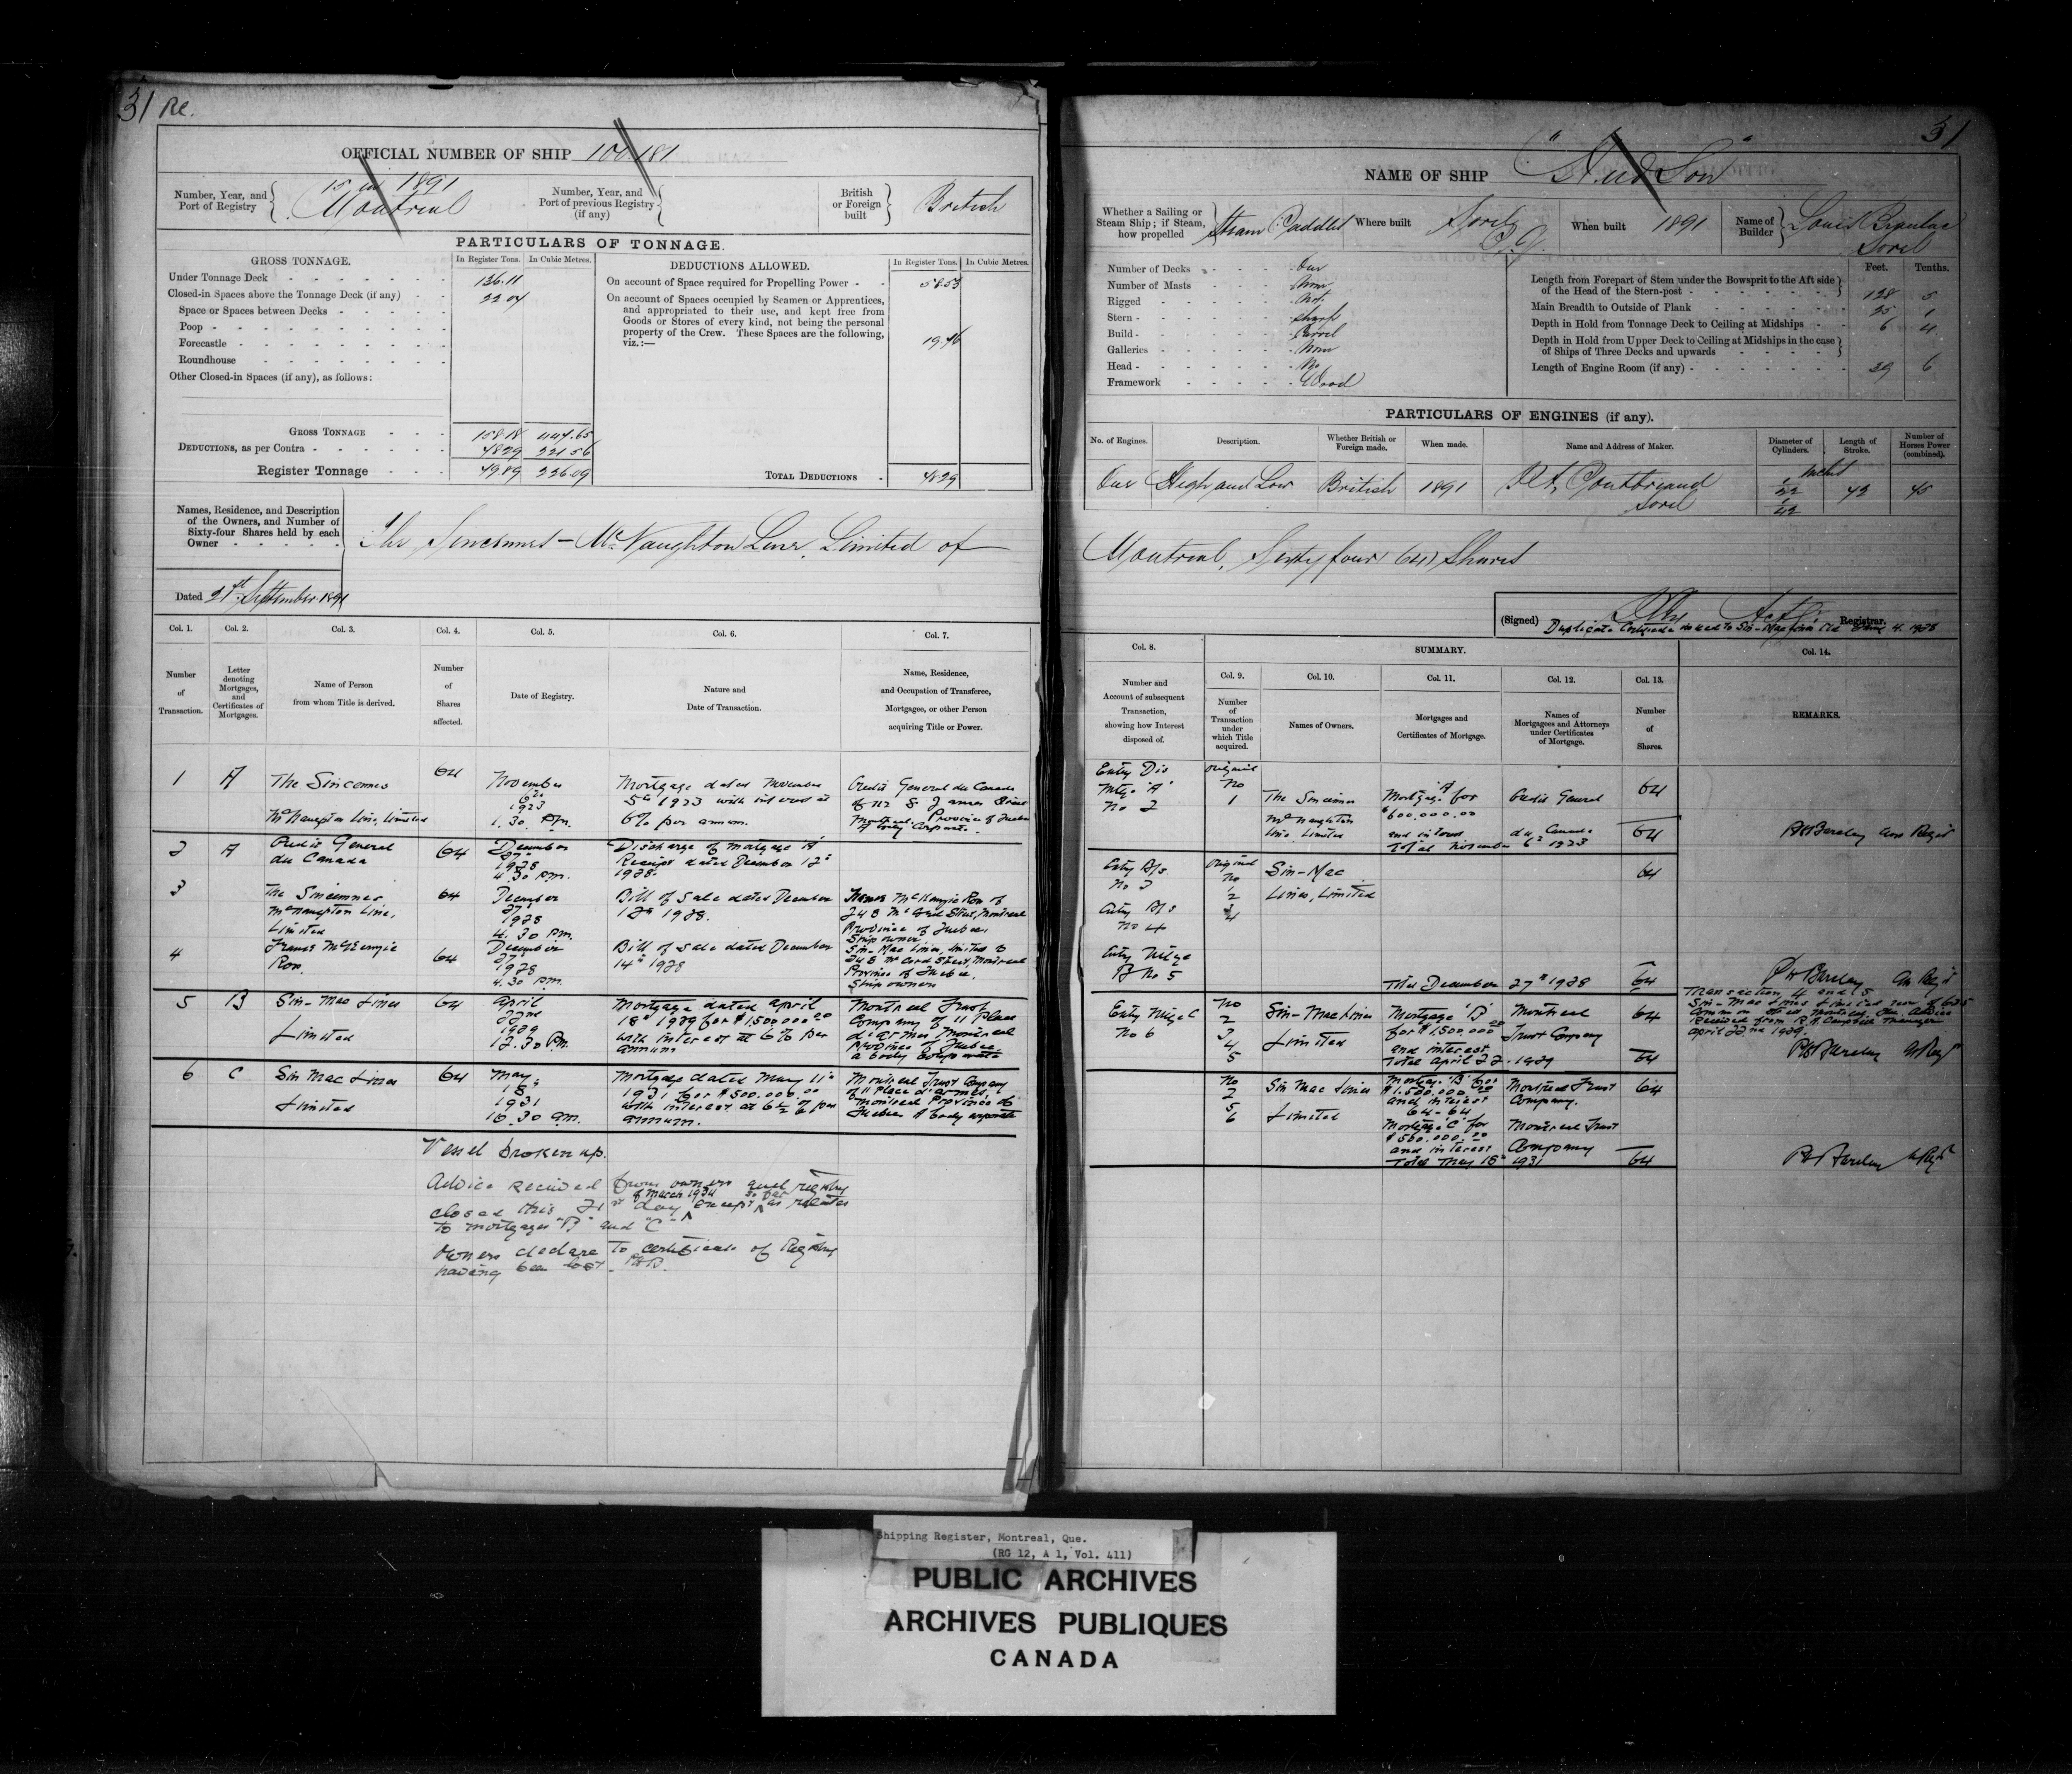 31 Re.
OFFICIAL NUMBER OF SHIP 100.181
Number, Year, and Port of Registry
15 in 1891
Montreal
Number, Year, and Port of previous Registry (if any)
British or Foreign built
British
PARTICULARS OF TONNAGE.
GROSS TONNAGE.
In Register Tons.
In Cubic Metres.
Under Tonnage Deck
136.11
Closed-in Spaces above the Tonnage Deck (if any)
22 07
Space or Spaces between Decks
Poop
Forecastle
Roundhouse
Other Closed-in Spaces (if any), as follows:
GROSS TONNAGE
158 18
447.65
DEDUCTIONS, as per Contra
221 56
Register Tonnage
226.09
DEDUCTIONS ALLOWED.
In Register Tons.
In Cubic Metres.
On account of Space required for Propelling Power
58 53
On account of Spaces occupied by Seamen or Apprentices,
and appropriated to their use, and kept free from
Goods or Stores of every kind, not being the personal
property of the Crew. These Spaces are the following,
viz.:—
TOTAL DEDUCTIONS
Names, Residence, and Description
of the Owners, and Number of
Sixty-four Shares held by each
Owner
The Sincennes - McNaughton Line, Limited of
Dated 21st September 1891
Col. 1.
Col. 2.
Col. 3.
Col. 4.
Col. 5.
Col. 6.
Col. 7.
Number of Transaction.
Letter denoting Mortgages, and Certificates of Mortgages.
Name of Person from whom Title is derived.
Number of Shares affected.
Date of Registry.
Nature and Date of Transaction.
Name, Residence, and Occupation of Transferee, Mortgagee, or other Person acquiring Title or Power.
1 A The Sincennes McNaughton Line, Limited
64
November 6th 1923 1.30 P.m.
Mortgage dated November 5th 1923 with interest at 6% per annum.
Credit General du Canada of 112 St James Street Montreal, Province of Quebec A body Corporate.
2 A Credit General du Canada
64
December 27 1928 4.30 P.m.
Discharge of Mortgage "A" Receipt dated December 12th 1928.
3 The Sincennes McNaughton Line, Limited
64
December 27 1928 4.30 P.m.
Bill of Sale dated December 12th 1928.
248 McCord Street, Montreal Province of Quebec, Ship owner
4
64
December 27 1928 4.30 P.m.
Bill of Sale dated December 14th 1928
Sin-Mac Lines, Limited 248 McCord Street, Montreal Province of Quebec, Ship owners
5 B Sin-Mac Lines Limited
64
April 22nd 1929 12.30 P.m.
Mortgage dated April 18th 1929 for $1,500.000.00 with interest at 6% per annum
Montreal Trust Company of 11 Place d'armes, Montreal Province of Quebec, a body Corporate
6 C Sin Mac Lines Limited
64
May 18 1931 10.30 am.
Mortgage dated May 11th 1931 for $500.000.00 with interest at 6½% per annum.
Montreal Trust Company of 11 Place d'armes, Montreal Province of Quebec A body corporate
Vessel broken up.
Advice received from owners and registry
closed this 21st day of March 1934 except so far as relates
to mortgages "B" and "C"
Owners declare to certificate of Registry
having been lost.
31
NAME OF SHIP "Hudson"
Whether a Sailing or Steam Ship; if Steam, how propelled
Steam Paddles
Where built
Sorel P.Q.
When built
1891
Name of Builder
Louis
Sorel
Number of Decks
One
Number of Masts
None
Rigged
Not
Stern
Sharp
Build
Carvel
Galleries
None
Head
No
Framework
Wood
Feet.
Tenths.
Length from Forepart of Stem under the Bowsprit to the Aft side of the Head of the Stern-post
128 5
Main Breadth to Outside of Plank
25 1
Depth in Hold from Tonnage Deck to Ceiling at Midships
6 4
Depth in Hold from Upper Deck to Ceiling at Midships in the case of Ships of Three Decks and upwards
Length of Engine Room (if any)
39 6
PARTICULARS OF ENGINES (if any).
No. of Engines.
Description.
Whether British or Foreign made.
When made.
Name and Address of Maker.
Diameter of Cylinders.
Length of Stroke.
Number of Horses Power (combined).
One
High and Low
British
1891
Sorel
Inches
1/22
1/42
42
45
Montreal, Sixty four (64) Shares
(Signed)
Registrar.
Duplicate Certificate issued to Sin-Mac Lines Ltd June 4. 1928
Col. 8.
SUMMARY.
Col. 14.
Number and Account of subsequent Transaction, showing how Interest disposed of.
Col. 9.
Col. 10.
Col. 11.
Col. 12.
Col. 13.
Number of Transaction under which Title acquired.
Names of Owners.
Mortgages and Certificates of Mortgage.
Names of Mortgagees and Attorneys under Certificates of Mortgage.
Number of Shares.
REMARKS.
Entry Dis Mtge "A" No 2
Original No 1
The Sincennes McNaughton Line Limited
Mortgage "A" for $600.000.00 and interest
Credit General du Canada
64
Total November 6th 1923
64
Entry B/s No 3
Entry B/s No 4
Original No 1 2 3 4
Sin-Mac Lines, Limited
64
Entry Mtge B No 5
Total December 27th 1928
64
Transaction 4 and 5
Sin-Mac Lines Limited now of 635
Common Street Montreal, Que. Advice
received from R. H. Campbell Manager
April 22nd 1929.
Entry Mtge C No 6
No 2 3 4 5
Sin-Mac Lines Limited
Mortgage "B" for $1,500.000.00 and interest
Montreal Trust Company
64
Total April 22. 1929
64
No 2 5 6
Sin Mac Lines Limited
Mortgage "B" for $1.500.000.00 and interest
64-64
Montreal Trust Company.
64
Mortgage "C" for $500.000.00 and interest
Montreal Trust Company
Total May 18th 1931
64
Shipping Register, Montreal, Que.
(RG 12, A 1, Vol. 411)
PUBLIC ARCHIVES
ARCHIVES PUBLIQUES
CANADA